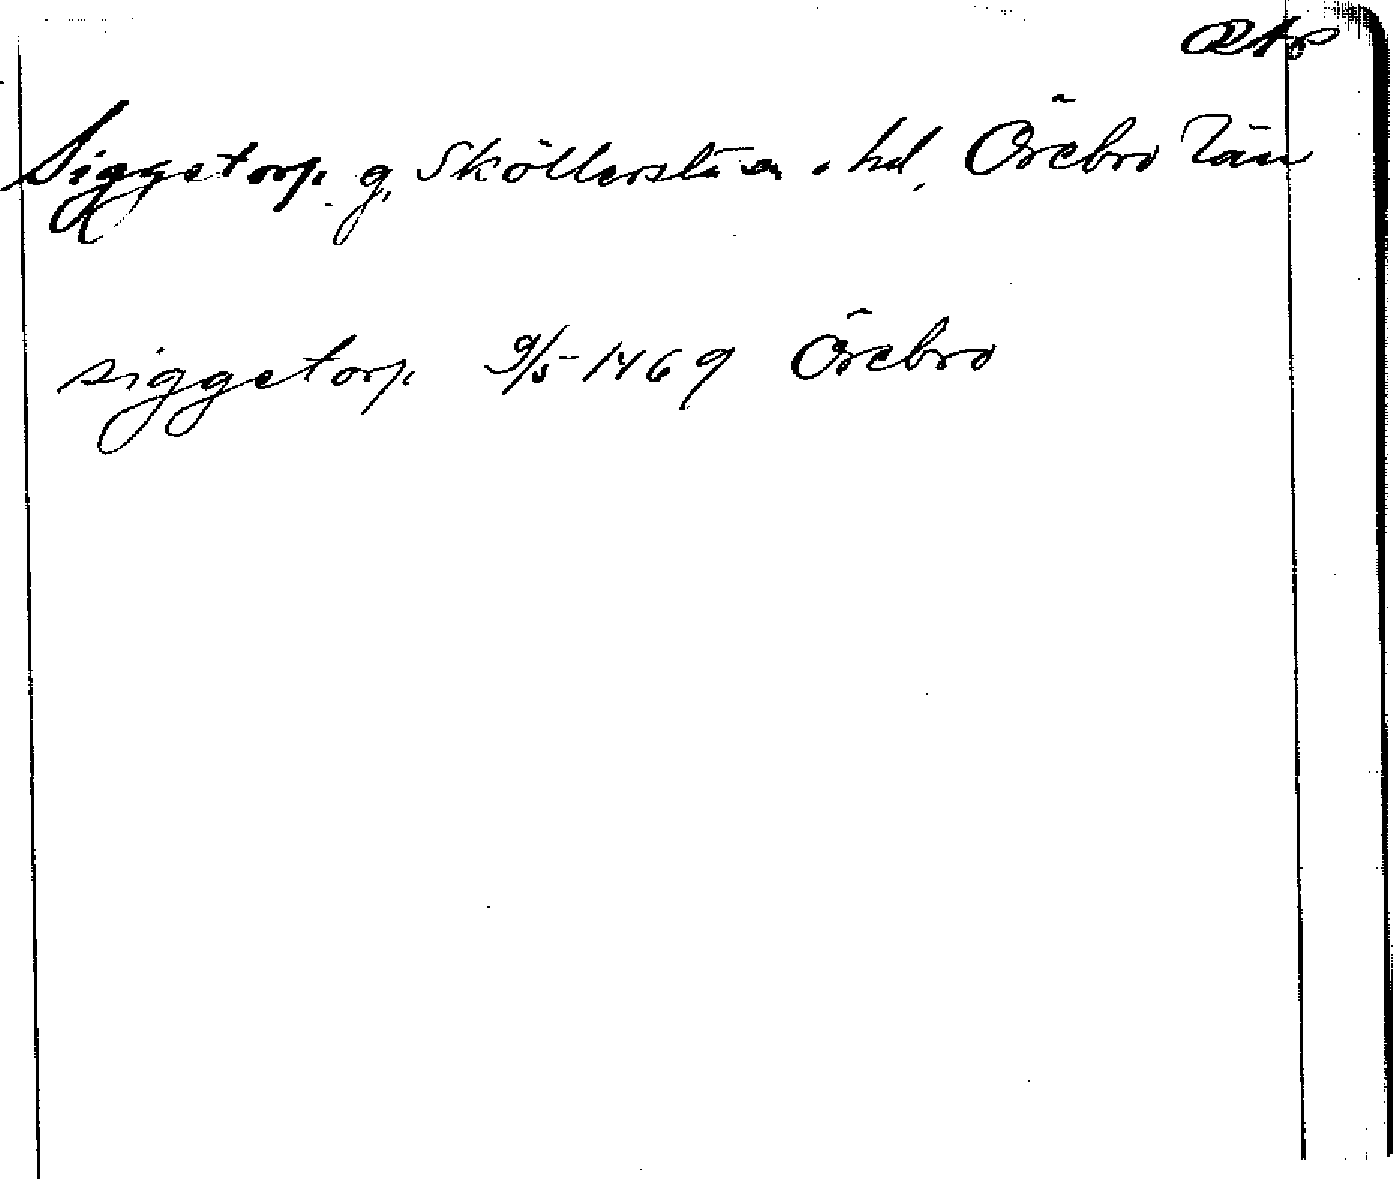 RAp
Siggetorp. g, Sköllersta sn. hd, Örebro län
siggetorp 9/5 1469 Örebro